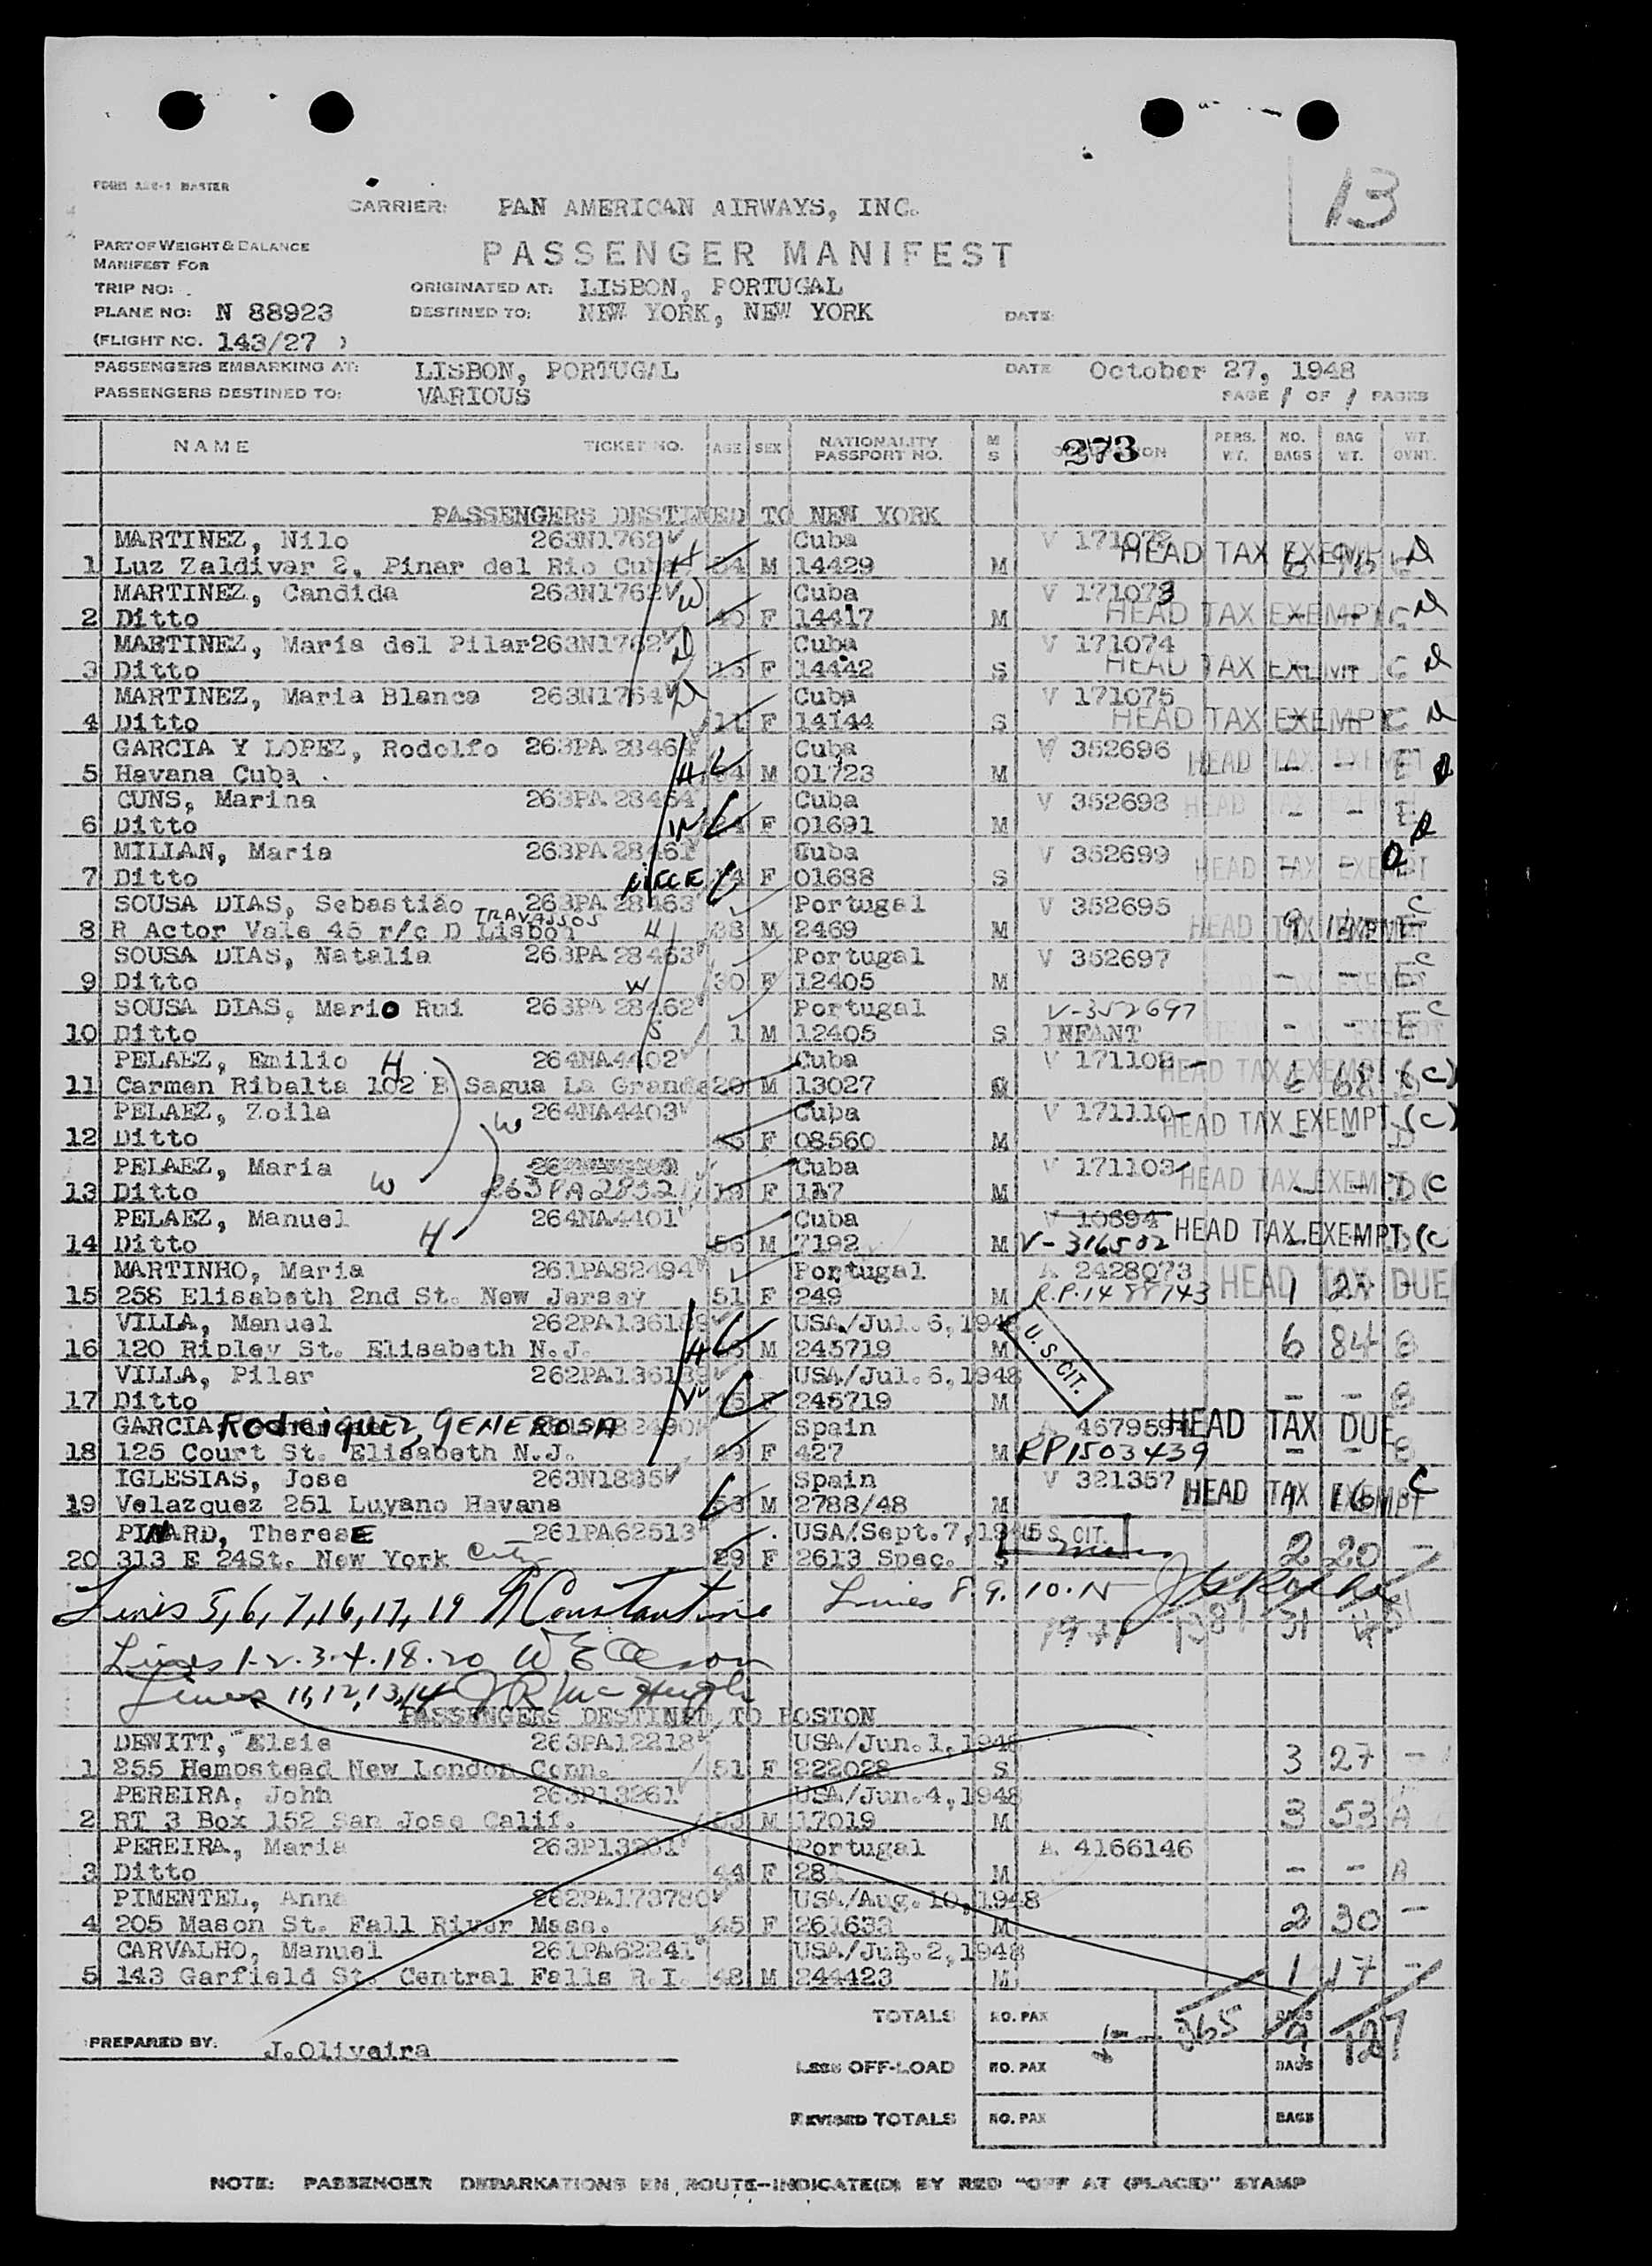 13
FORM MASTER
CARRIER: PAN AMERICAN AIRWAYS, INC.
PART OF WEIGHT & BALANCE
MANIFEST FOR
PASSENGER MANIFEST
TRIP NO: ORIGINATED AT: LISBON, PORTUGAL
PLANE NO: N 88923 DESTINED TO: NEW YORK, NEW YORK DATE
(FLIGHT NO. 143/27 )
PASSENGERS EMBARKING AT: LISBON, PORTUGAL DATE October 27, 1948
PASSENGERS DESTINED TO: VARIOUS PAGE 1 OF 1 PAGES
NAME TICKET NO. AGE SEX NATIONALITY PASSPORT NO. M S 273 PERS. WT. NO. BAGS BAG WT.
PASSENGERS DESTINED TO NEW YORK
MARTINEZ, Nilo 263N1762 Cuba V 171072
1 Luz Zaldivar 2, Pinar del Rio Cuba H M 14429 M HEAD TAX EXEMPT
MARTINEZ, Candida 263N1762 W Cuba V 171073
2 Ditto F 14417 M HEAD TAX EXEMPT C
MARTINEZ, Maria del Pilar 263N1762 Cuba V 171074
3 Ditto F 14442 S HEAD TAX EXEMPT C
MARTINEZ, Maria Blanca 263N1764 Cuba V 171075
4 Ditto 11 F 14144 S HEAD TAX EXEMPT C
GARCIA Y LOPEZ, Rodolfo 263PA 28464 Cuba V 352696
5 Havana Cuba H M 01723 M HEAD TAX EXEMPT
CUNS, Marina 263PA 28464 Cuba V 352698
6 Ditto F 01691 M HEAD
MILIAN, Maria 263PA 28461 Cuba V 352699
7 Ditto NIECE F 01688 S HEAD TAX EXEMPT
SOUSA DIAS, Sebastião 263PA 28463 Portugal V 352695
TRAVASSOS
8 R Actor Vale 45 r/c D Lisbon H 38 M 2469 M HEAD TAX EXEMPT
SOUSA DIAS, Natalia 263PA 28463 Portugal V 352697
9 Ditto W 30 F 12405 M
SOUSA DIAS, Mario Rui 263PA 28462 Portugal V-352697
10 Ditto S 1 M 12405 S INFANT
PELAEZ, Emilio H 264NA4402 Cuba V 171108
11 Carmen Ribalta 102 B Sagua La Grande 20 M 13027 HEAD TAX EXEMPT (C)
PELAEZ, Zoila 264NA4403 W Cuba V 171110
12 Ditto F 08560 M HEAD TAX EXEMPT (C)
PELAEZ, Maria Cuba V 171103
13 Ditto W 263PA28521 F 117 M HEAD TAX EXEMPT (C
PELAEZ, Manuel 264NA4401 Cuba V 10694
14 Ditto H 56 M 7192 M V-316502 HEAD TAX EXEMPT (C
MARTINHO, Maria 261PA82494 Portugal A 2428073
15 258 Elisabeth 2nd St. New Jersey 51 F 249 M R.P. 1488743 HEAD TAX DUE 1 27
VILLA, Manuel 262PA136189 USA/Jul.6,1948
16 120 Ripley St. Elisabeth N.J. H M 245719 M U.S. CIT. 6 84
VILLA, Pilar 262PA136189 USA/Jul.6,1948
17 Ditto W F 245719 M - -
GARCIA Rodriguez, GENEROSA Spain HEAD TAX DUE
18 125 Court St. Elisabeth N.J. F 427 M RP1503439 - -
IGLESIAS, Jose 263N1835 Spain V 321357
19 Velazquez 251 Luyano Havana 53 M 2788/48 M HEAD TAX EXEMPT C
PINARD, ThereseE 261PA62513 USA/Sept.7,1948 U.S. CIT.
20 313 E 24St. New York City 29 F 2613 Spec. S 2 20 -
Lines 5, 6, 7, 16, 17, 19 Constantine Lines 8. 9. 10.
Lines 1-2.3.4.18.20 W E
Lines 11, 12, 13, 14 J R McHugh
PASSENGERS DESTINED TO BOSTON
DEWITT, Elsie 263PA12218 USA/Jun.1,1948
1 255 Hempstead New London Conn. 51 F 222028 S 3 27 -
PEREIRA, John 263P13261 USA/Jun.4,1948
2 RT 3 Box 152 San Jose Calif. M 17019 M 3 53 A
PEREIRA, Maria 263P13261 Portugal A 4166146
3 Ditto 44 F 28 M - - A
PIMENTEL, Anna 262PA173780 USA/Aug.10,1948
4 205 Mason St. Fall River Mass. F 261633 M 2 30 -
CARVALHO, Manuel 261PA62241 USA/Jul.2,1948
5 143 Garfield St. Central Falls R.I. 48 M 244423 M 1 17 -
TOTALS NO. PAX 5 865 BAGS 9 127
PREPARED BY. J.Oliveira
LESS OFF-LOAD NO. PAX BAGS
REVISED TOTALS NO. PAX BAGS
NOTE: PASSENGER DEBARKATIONS EN ROUTE-INDICATE(D) BY RED "OFF AT (PLACE)" STAMP